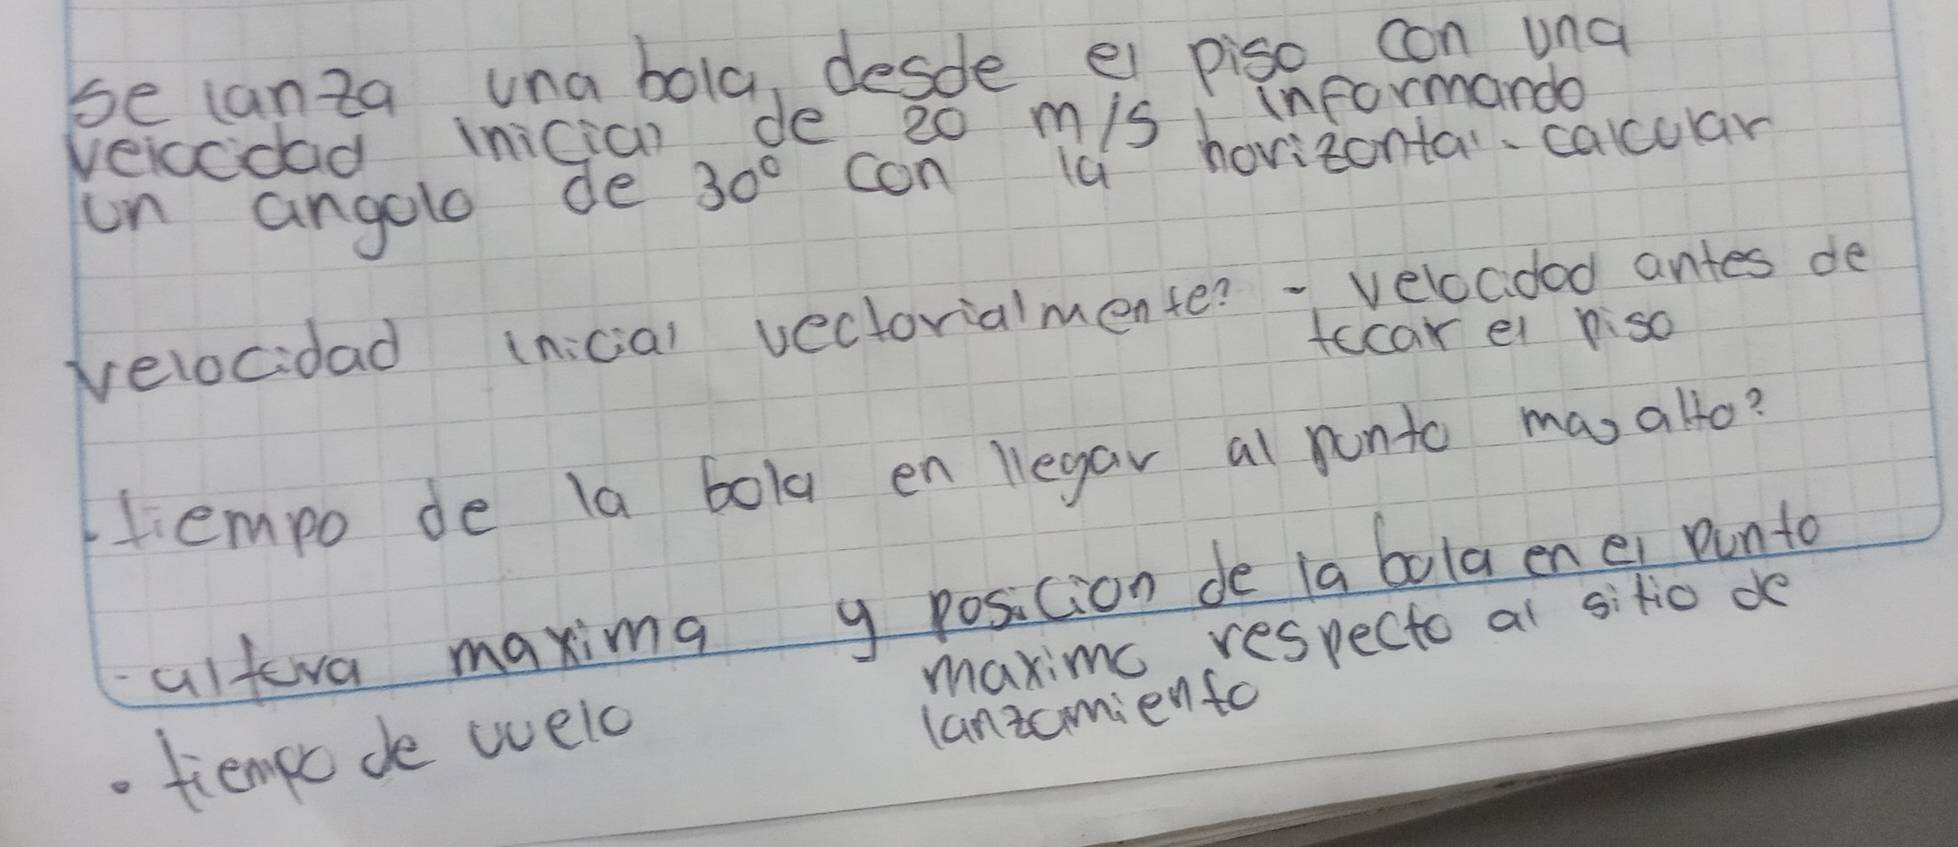 se lanza una bola, desde el piso con una
velocidad inicial de 20 m/s, informando
un angulo de 30° con la horizontal. calcular
velocidad inicial vectorialmente? - velocidad antes de
tocar el piso
. tiempo de la bola en llegar al punto mas alto?
- altura maxima y posicion de la bola en el punto
maximo respecto al sitio de
lanzamiento
• tiempo de vuelo